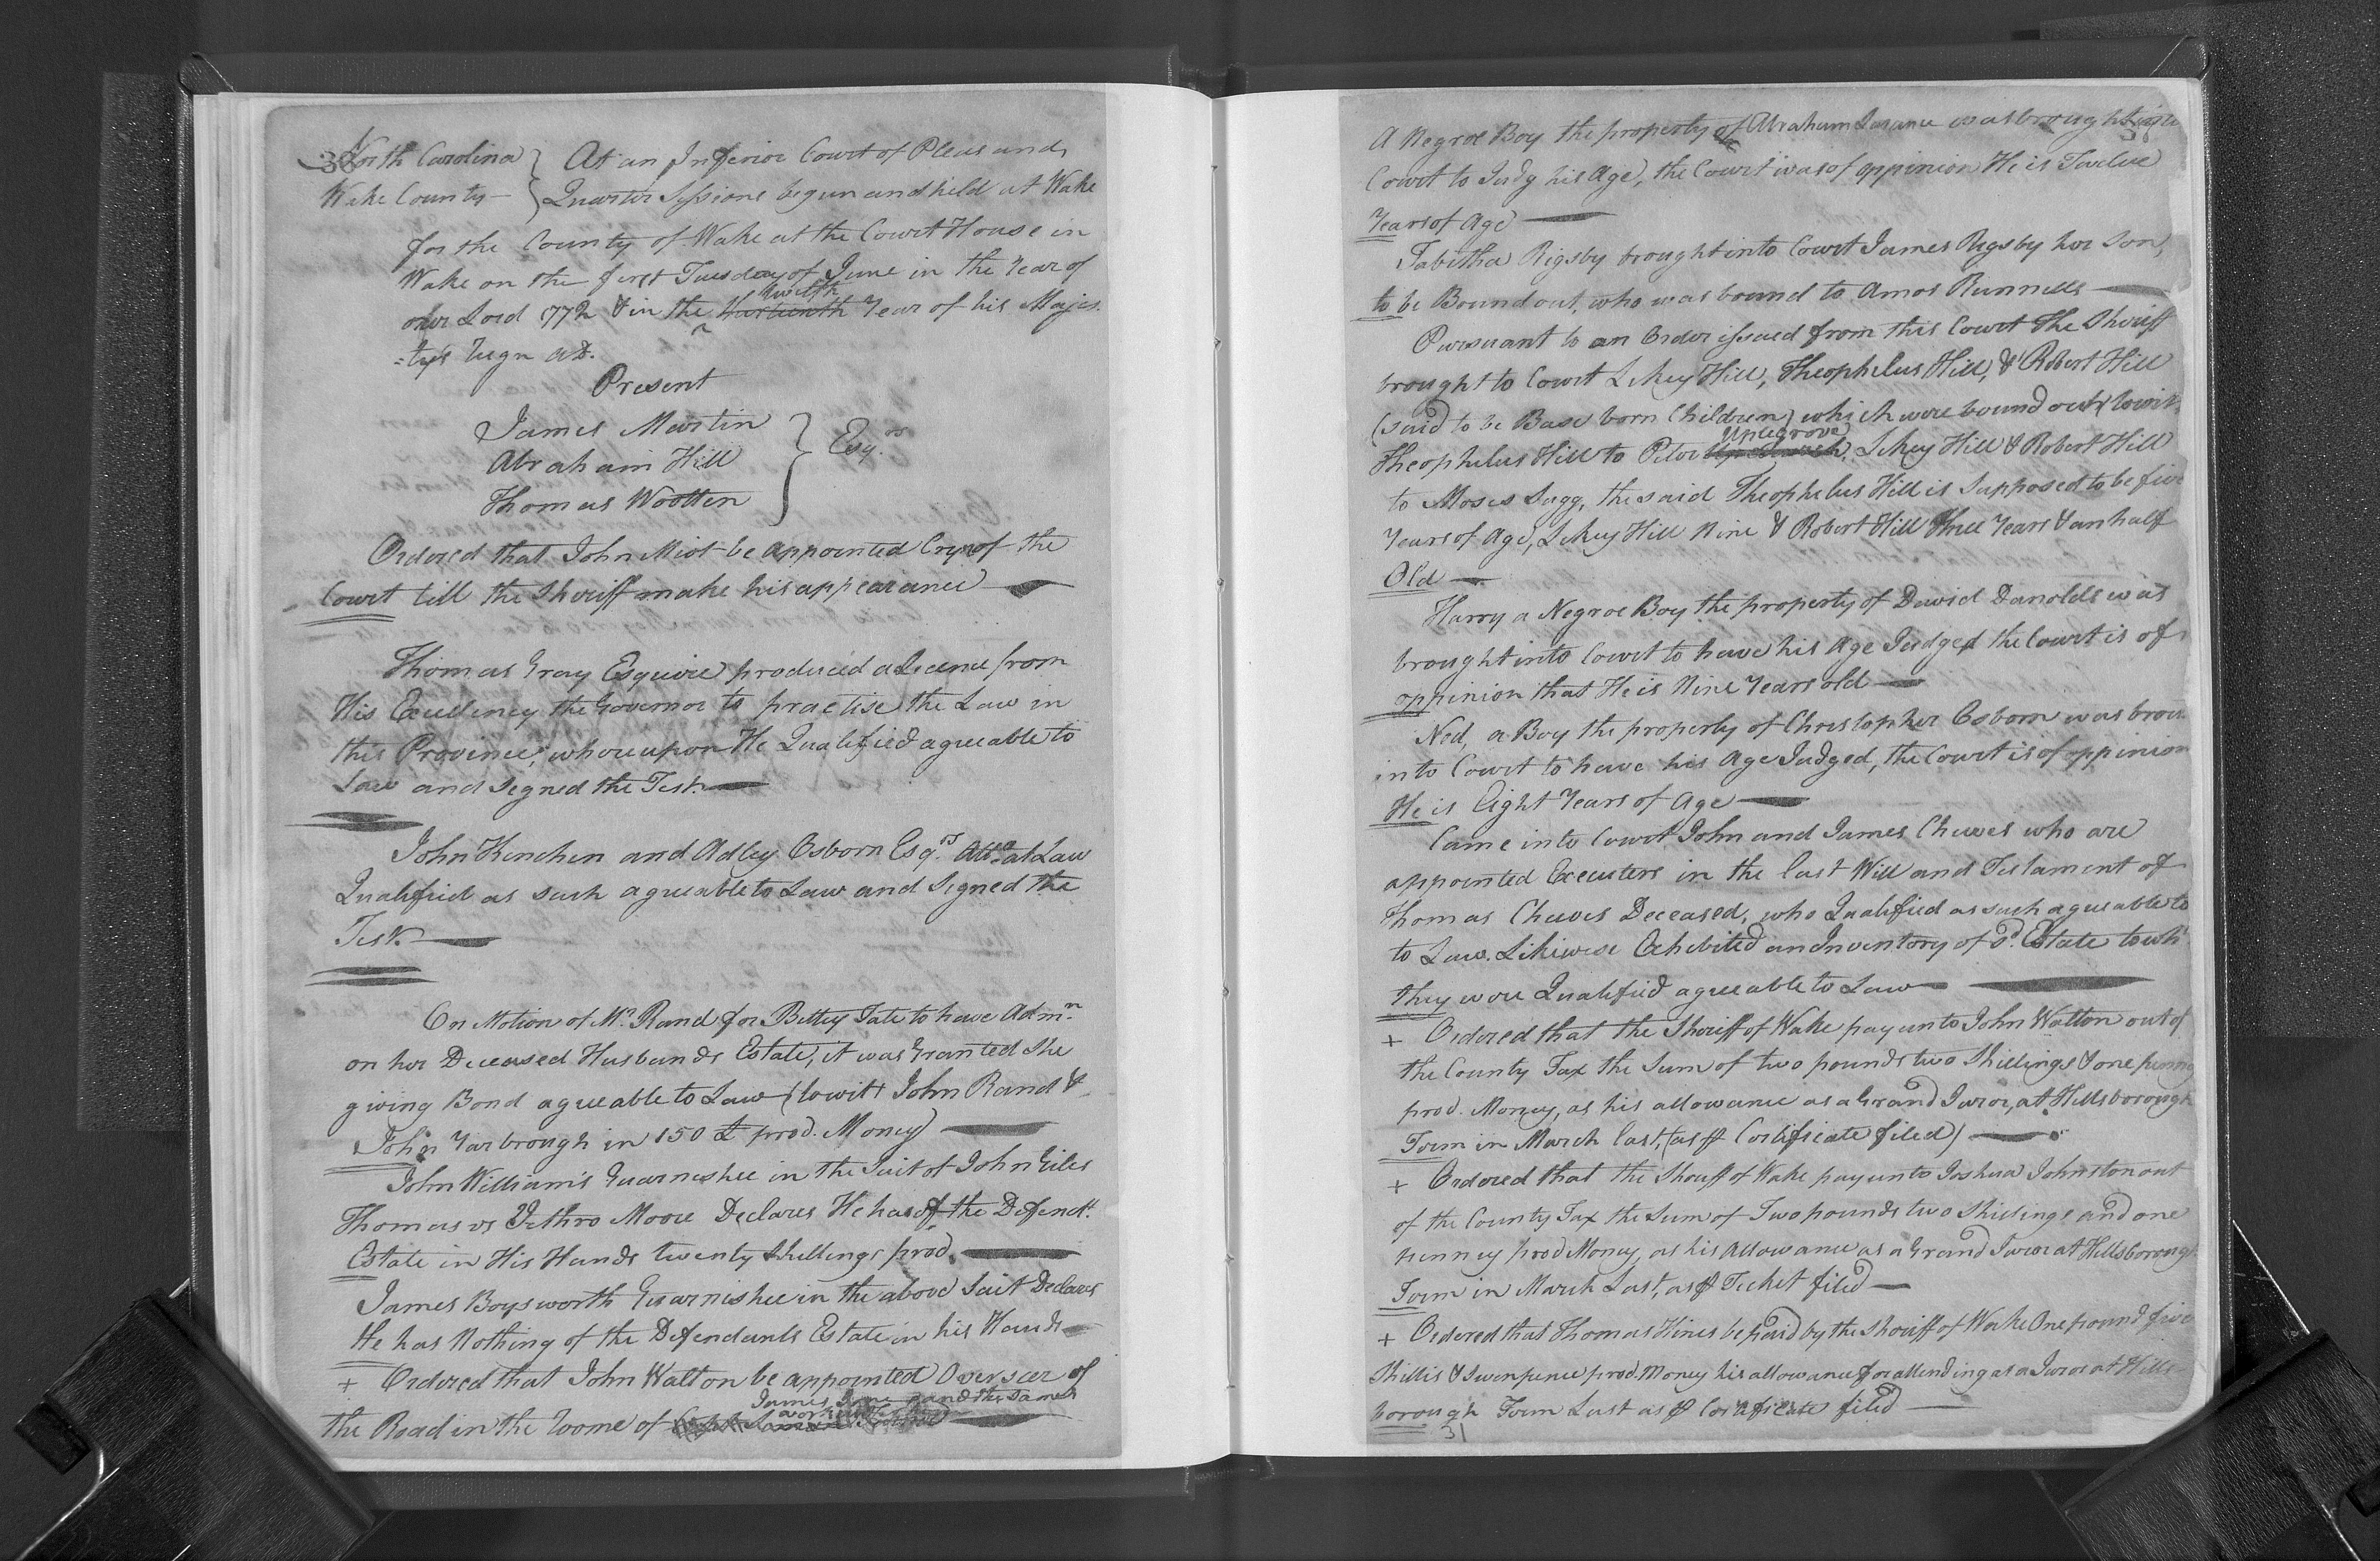 North Carolina } At an Inferior Court of Pleas and
Wake County — } Quarter Sessions begun and held at Wake
for the County of Wake at the Court House in
Wake on the first Tuesday of June in the Year of
our Lord 1772 & in the Thirteenth Twelfth Year of his Majes-
=ty's Reign &c.
Present
James Martin
Abraham Hill } Esqrs
Thomas Wootten
Ordered that John Miot be appointed Cryer of the
Court till the Sheriff make his appearance —
Thomas Gray Esquire produced a Licence from
His Excellency the Governor to practise the Law in
this Province, whereupon He Qualified agreeable to
Law and Signed the Test. —
John Kinchen and Adley Osborn Esqrs. Atts. at Law
Qualified as such agreeable to Law and Signed the
Test. —
On Motion of Mr. Rand for Bettey Tate to have Admn.
on her Deceased Husbands Estate, it was Granted She
giving Bond agreeable to Law (towit) John Rand &
John Yarbrough in 150 £ prod. Money) —
John William's Guarnishee in the Suit of John Giles
Thomas vs Jethro Moore Declares He has of the Defendt.
Estate in His Hands twenty Shillings prod. —
James Boysworth Guarnishee in the above Suit Declares
He has Nothing of the Defendants Estate in his Hands —
+ Ordered that John Walton be appointed Overseer of
James and the same
the Road in the Roome of
A Negroe Boy the property of Abraham was brought into
Court to Judg his Age, the Court was of oppinion He is Twelve
Years of Age —
Tabitha Rigsby brought into Court James Rigsby her Son,
to be Bound out, who was bound to Amos Runnells —
Pursuant to an Order issued from this Court The Sheriff
brought to Court Lekey Hill, Theophelus Hill, & Robert Hill
(said to be Base born Children) which were bound out, (towit)
Theophelus Hill to Peter Upelgrove, Lekey Hill & Robert Hill
to Moses Sugg, the said Theophelus Hill is Supposed to be five
Years of Age, Lekey Hill Nine & Robert Hill Three Years & an half
Old —
Harry a Negroe Boy the property of David Danolds was
brought into Court to have his Age Judged the Court is of
oppinion that He is Nine Years old —
Ned, a Boy the property of Christopher Osborn was brou
into Court to have his Age Judged, the Court is of oppinion
He is Eight Years of Age —
Came into Court John and James Cheves who are
appointed Executers in the last Will and Testament of
Thomas Cheves Deceased, who Qualified as such agreeable to
to Law. Likewise Exhibited an Inventory of sd. Estate to wh
they were Qualified agreeable to Law —
+ Ordered that the Sheriff of Wake pay unto John Walton out of
the County Tax the Sum of two pounds two Shillings & one penny
prod. Money, as his allowance as a Grand Juror, at Hillsborough
Term in March last, (as ⅌ Certificate filed) —
+ Ordered that the Sheriff of Wake pay unto Joshua Johnston out
of the County Tax the Sum of Two pounds two Shillings and one
penney prod Money, as his Allowance as a Grand Juror at Hillsborough
Term in March Last, as ⅌ Ticket filed —
+ Ordered that Thomas Hines be paid by the Sheriff of Wake One pound five
Shills & Sevenpence prod. Money his allowance for attending as a Juror at Hills-
borough Term Last as ⅌ Certificate filed —
31